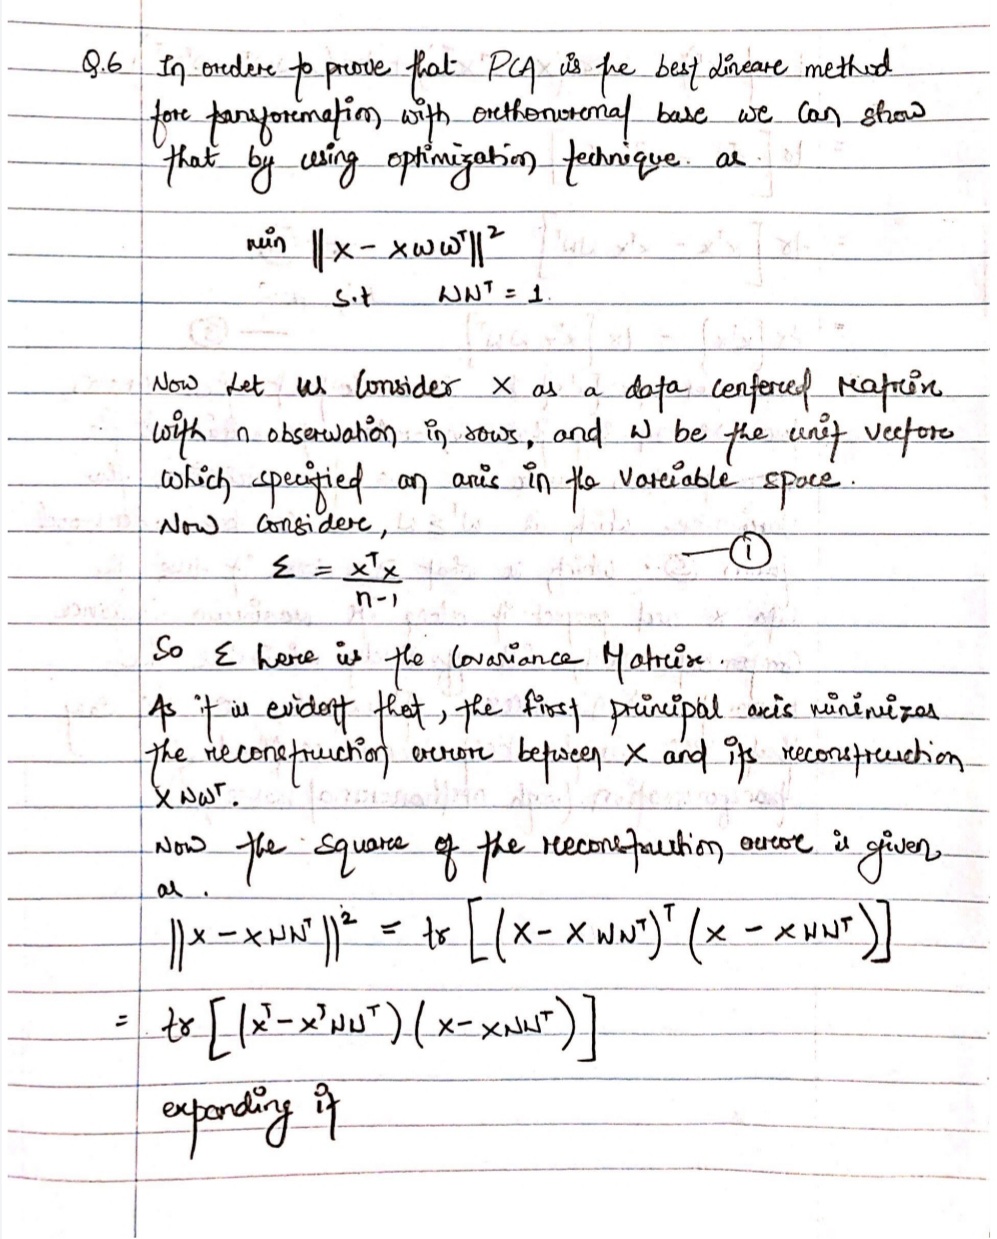 Q.6 In ordere to prove that PCA is the best lineare method
fore transforemation with orethonoremal base we can show
that by using optimization technique. as
min ||X - XWWᵀ||²
S.t WWᵀ = 1.
Now Let us Consider X as a data centered Matrix
with n observation in rows, and W be the unit vectore
which specified an axis in the Vareiable space.
Now Considere,
Σ = XᵀX / n-1 — (i)
So Σ here is the Covariance Matrix.
As it is evident that, the first principal axis minimizes
the reconstruction error between X and its reconstruction
XWWᵀ.
Now the square of the reconstruction error is given
as.
||X - XWWᵀ||² = tr [(X - XWWᵀ)ᵀ (X - XWWᵀ)]
= tr [(Xᵀ - XᵀWWᵀ) (X - XWWᵀ)]
expanding it